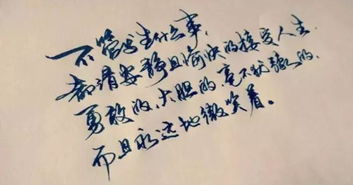 不管发生什么事,
都请安静且愉快的接受人生
勇敢的、大胆的、毫不犹豫的、
而且永远地微笑着。